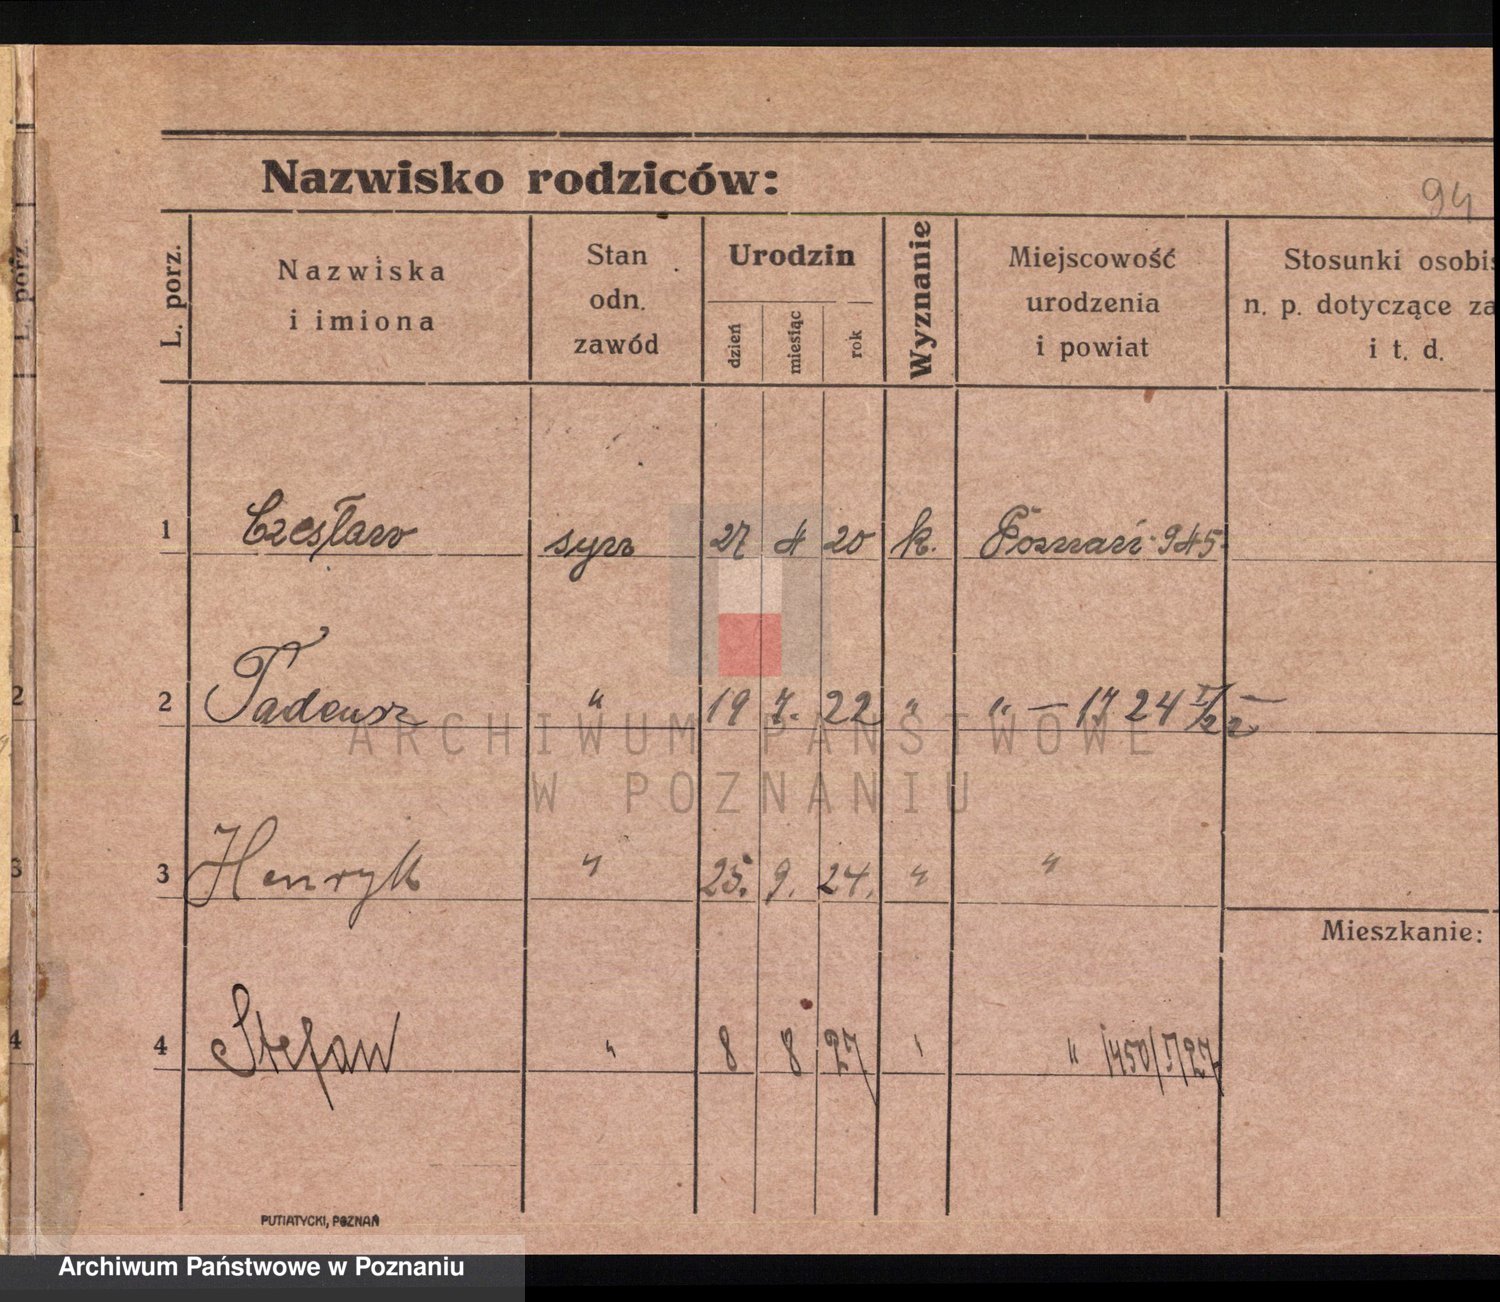 Nazwisko rodziców:
94
L. porz.
L. porz.
Nazwiska
i imiona
Stan
odn.
zawód
Urodzin
dzień
miesiąc
rok
Wyznanie
Miejscowość
urodzenia
i powiat
Stosunki osobis
n. p. dotyczące za
i t. d.
1 1 Czesław syn 27 4 20 k. Poznań 945.
2 2 Tadeusz " 19 7. 22 " " — 1724 I/22 —
ARCHIWUM PAŃSTWOWE
W POZNANIU
3 3 Henryk " 25. 9. 24. " "
Mieszkanie:
4 4 Stefan " 8 8 27 " 1450/I/27
PUTIATYCKI, POZNAŃ
Archiwum Państwowe w Poznaniu